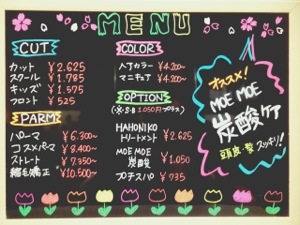 MENU
CUT
カット ¥2.625
スクール ¥1.785
キッズ ¥1.575
フロント ¥525
PARM
パーマ ¥6.300~
コスメパーマ ¥8.400~
ストレート ¥7.350~
縮毛矯正 ¥10.500~
COLOR
ヘアカラー ¥4.200~
マニキュア ¥4.200~
OPTION
1.050円プラス
HAHONIKO
トリートメント ¥2.625
MOE MOE
炭酸 ¥1.050
プチスパ ¥735
オススメ!
MOE MOE
炭酸ケア
頭皮・髪 スッキリ!